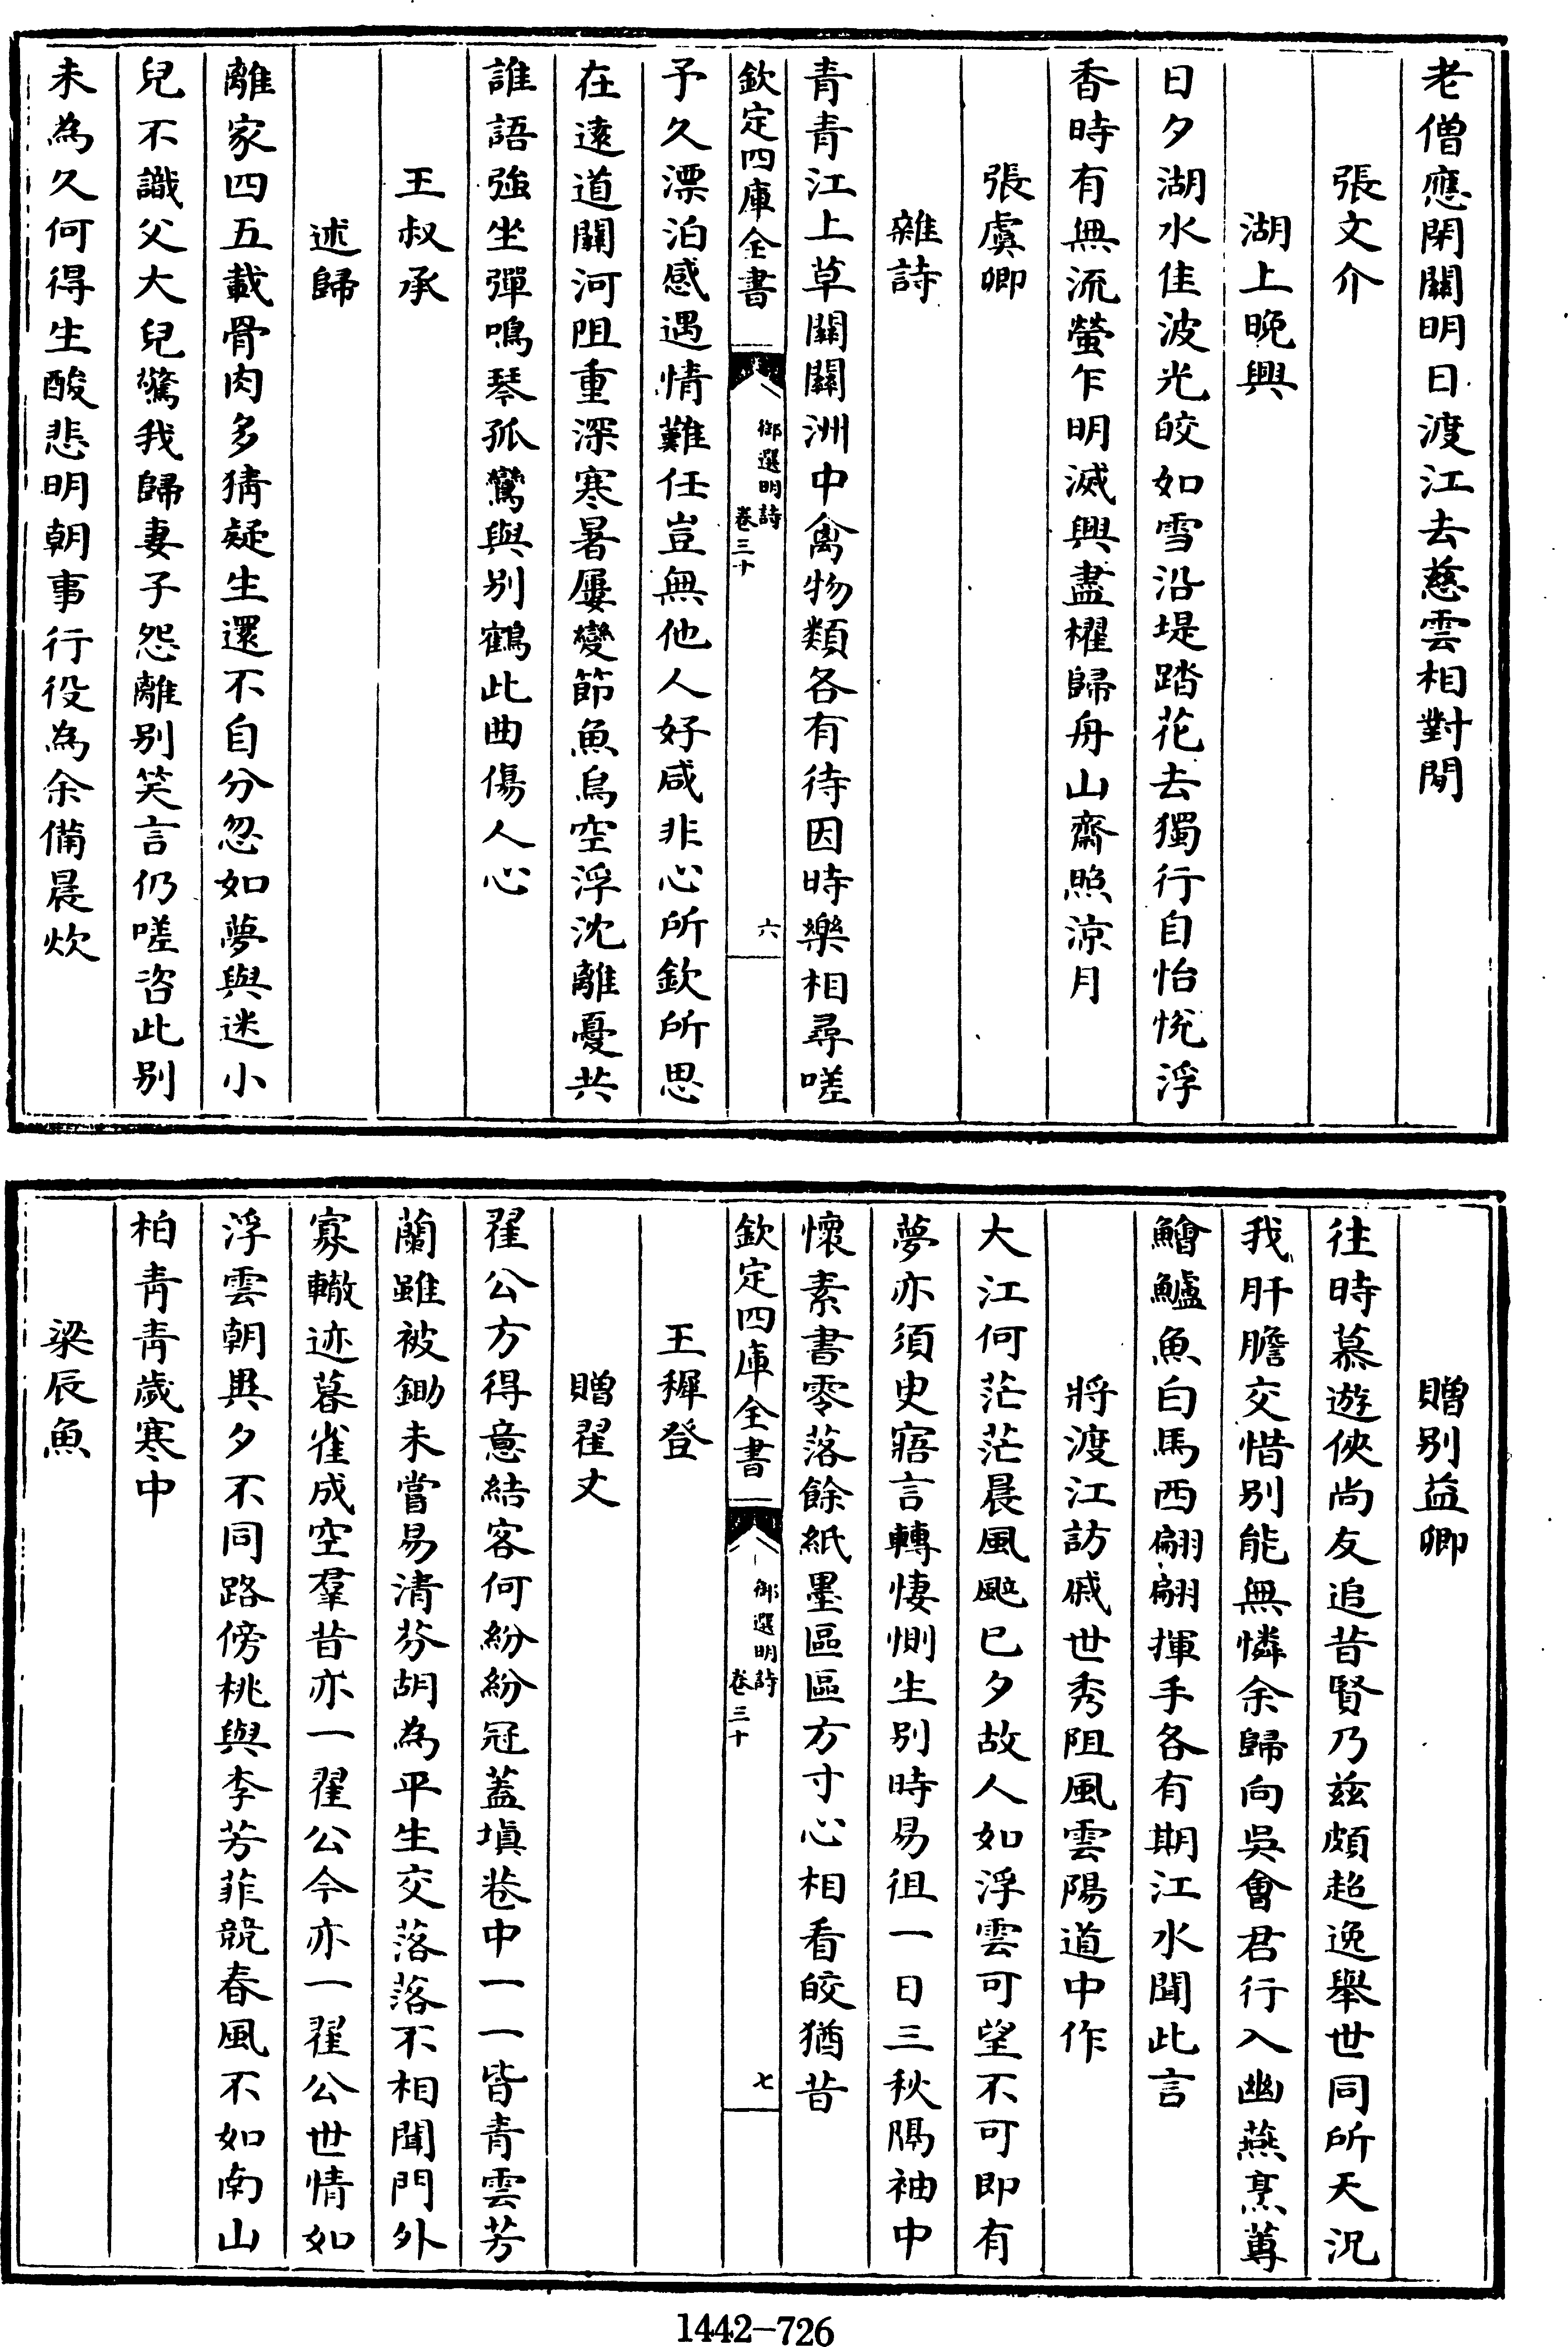 老僧應閑關明日渡江去慈雲相對閒
張文介
湖上晚興
日夕湖水佳波光皎如雪沿堤踏花去獨行自怡悅浮
香時有無流螢乍明滅興盡櫂歸舟山齋照涼月
張虞卿
雜詩
青青江上草關關洲中禽物類各有待因時樂相尋嗟
欽定四庫全書
御選明詩
卷三十
六
予久漂泊感遇情難任豈無他人好咸非心所欽所思
在遠道關河阻重深寒暑屢變節魚鳥空浮沈離憂共
誰語強坐彈鳴琴孤鸞與別鶴此曲傷人心
王叔承
述歸
離家四五載骨肉多猜疑生還不自分忽如夢與迷小
兒不識父大兒驚我歸妻子怨離別笑言仍嗟咨此別
未為久何得生酸悲明朝事行役為余備晨炊
贈別益卿
往時慕遊俠尚友追昔賢乃茲頗超逸舉世同所天況
我肝膽交惜別能無憐余歸向吳會君行入幽燕烹蓴
鱠鱸魚白馬西翩翩揮手各有期江水聞此言
將渡江訪戚世秀阻風雲陽道中作
大江何茫茫晨風颭已夕故人如浮雲可望不可即有
夢亦須臾寤言轉悽惻生別時易徂一日三秋隔袖中
懷素書零落餘紙墨區區方寸心相看皎猶昔
欽定四庫全書
御選明詩
卷三十
七
王穉登
贈翟丈
翟公方得意結客何紛紛冠蓋填巷中一一皆青雲芳
蘭雖被鋤未嘗易清芬胡為平生交落落不相聞門外
寡轍迹暮雀成空羣昔亦一翟公今亦一翟公世情如
浮雲朝與夕不同路傍桃與李芳菲競春風不如南山
柏青青歲寒中
梁辰魚
1442-726